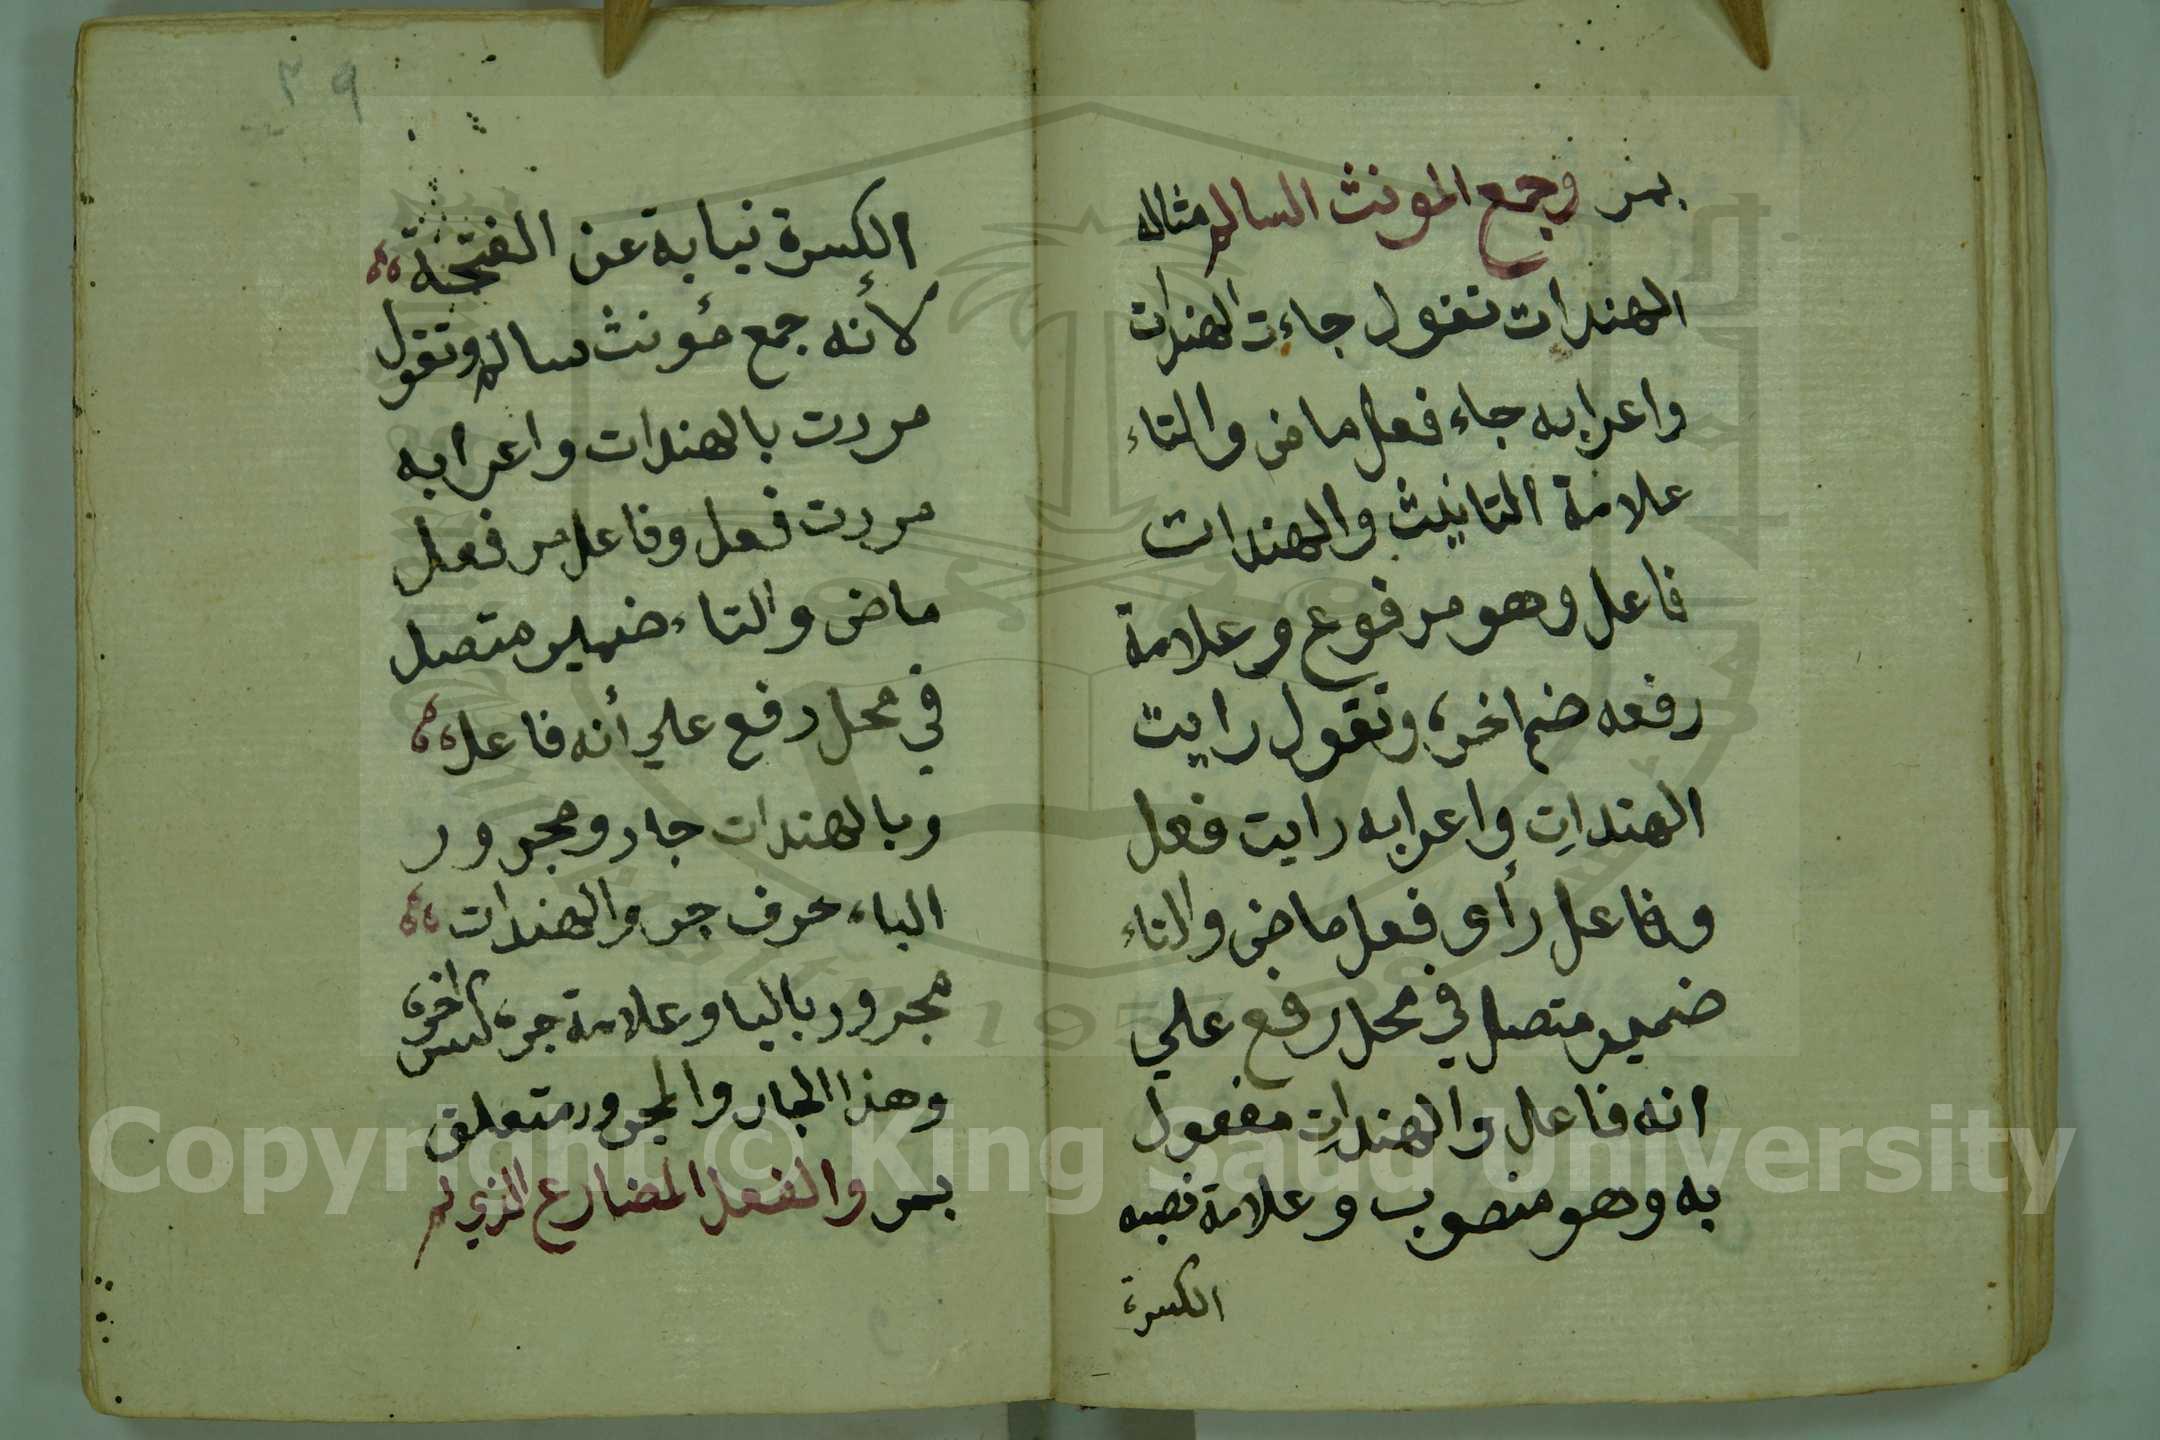 بمر وجمع المونث السالم مثاله
الهندات تقول جاءت الهندات
واعرابه جاء فعل ماض والتاء
علامة التانيث والهندات
فاعل وهو مرفوع وعلامة
رفعه ضم اخره وتقول رايت
الهنداتِ واعرابه رايت فعل
وفاعل رأى فعل ماض والتاء
ضمير متصل في محل رفع علي
انه فاعل والهندات مفعول
به وهو منصوب وعلامة نصبه
الكسرة
٣٩
الكسرة نيابة عن الفتحة
لأنه جمع مؤنث سالم وتقول
مررت بالهندات واعرابه
مررت فعل وفاعل مر فعل
ماض والتاء ضمير متصل
في محل رفع علي أنه فاعل
وبالهندات جار ومجرور
الباء حرف جر والهندات
مجرور باليا وعلامة جره كسر اخره
وهذا الجار والمجرور متعلق
بمر والفعل المضارع الذي لم
1957
Copyright © King Saud University